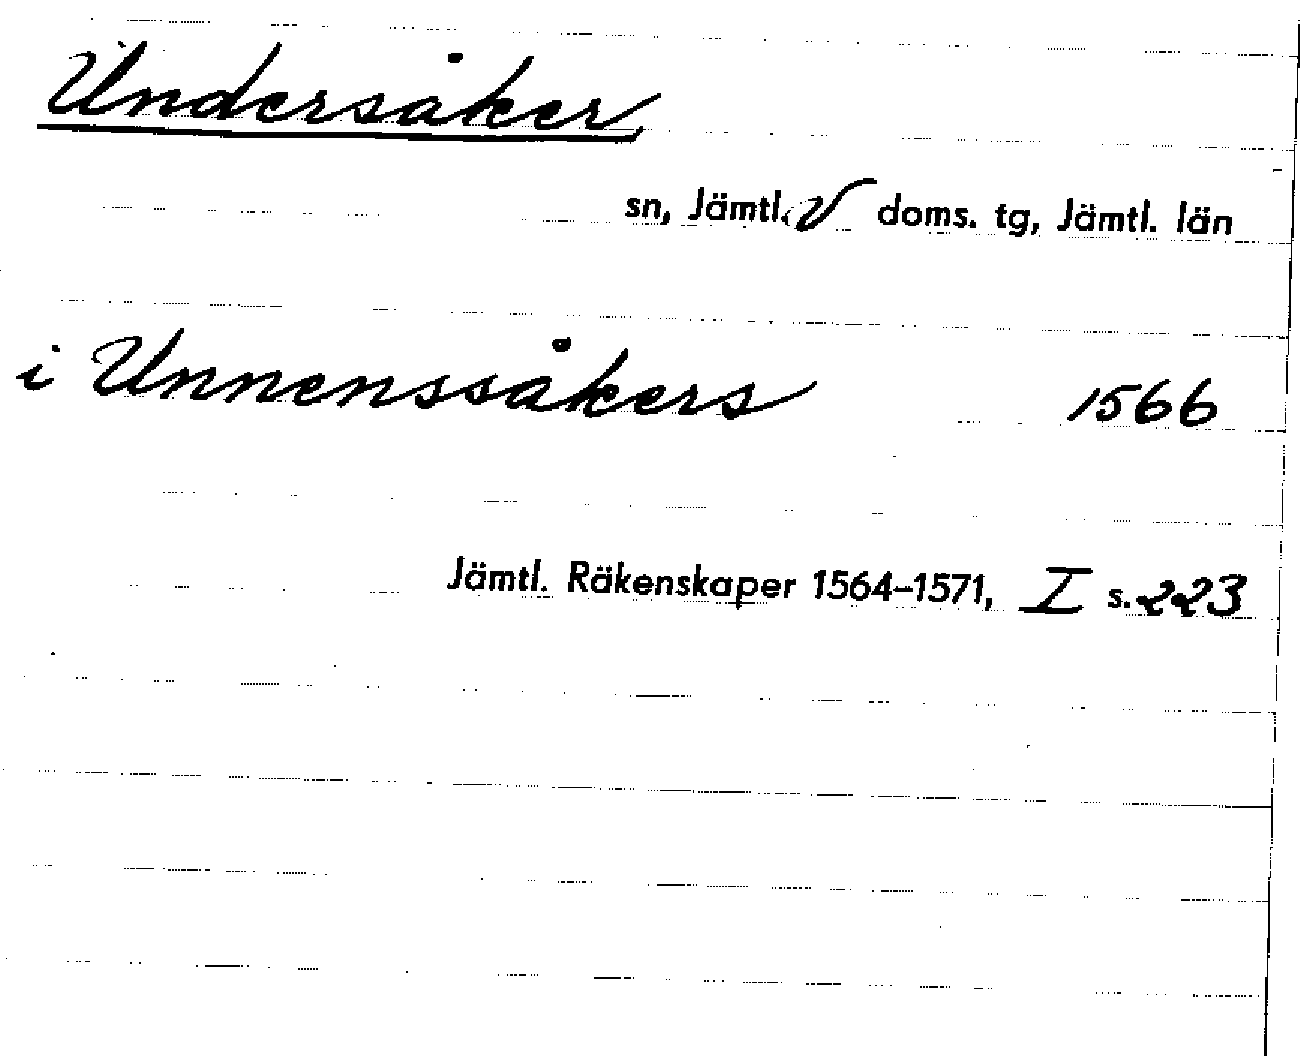 Undersåker
sn, Jämtl. V doms. tg, Jämtl. län
i Unnenssåkers 1566
Jämtl. Räkenskaper 1564–1571, I s. 223